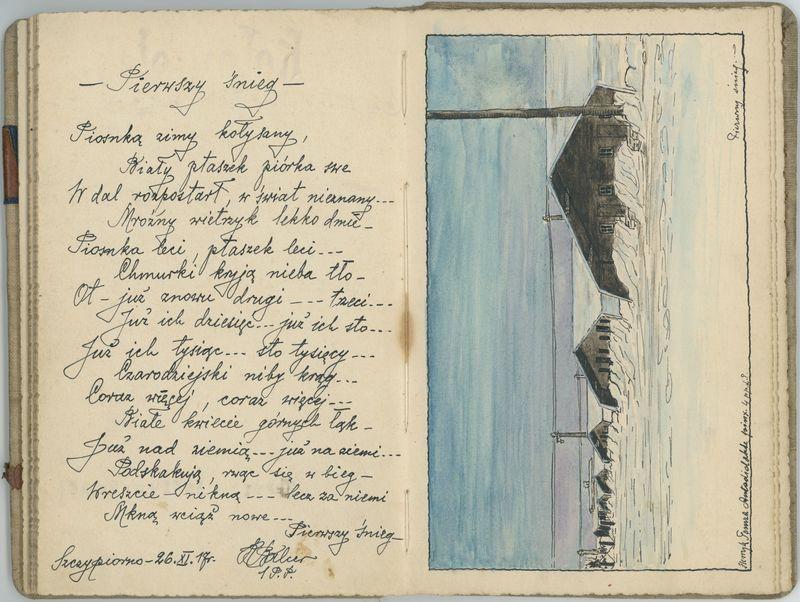 — Pierwszy śnieg —
Piosnką zimy kołysany,
Biały ptaszek piórka swe
W dal rozpostarł, w świat nieznany...
Mroźny wietrzyk lekko dmie –
Piosnka leci, ptaszek leci...
Chmurki kryją nieba tło –
Ot – już znowu drugi – ... trzeci...
Już ich dziesięć... już ich sto...
Już ich tysiąc... sto tysięcy...
Czarodziejski niby krąg...
Coraz więcej, coraz więcej...
Białe kwiecie górnych łąk –
Już nad ziemią... już na ziemi...
Podskakują, rwąc się w bieg –
Wreszcie – nikną... lecz za niemi
Mkną wciąż nowe...
Pierwszy śnieg –
Szczypiorno – 26.XI.17r.
1 P.P.
Pierwszy śnieg. –